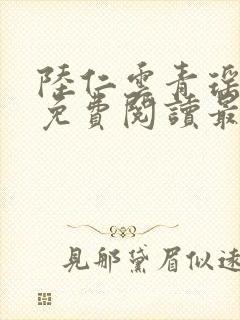 陸仁雲青瑶
免費閱讀最
見那黛眉似遠